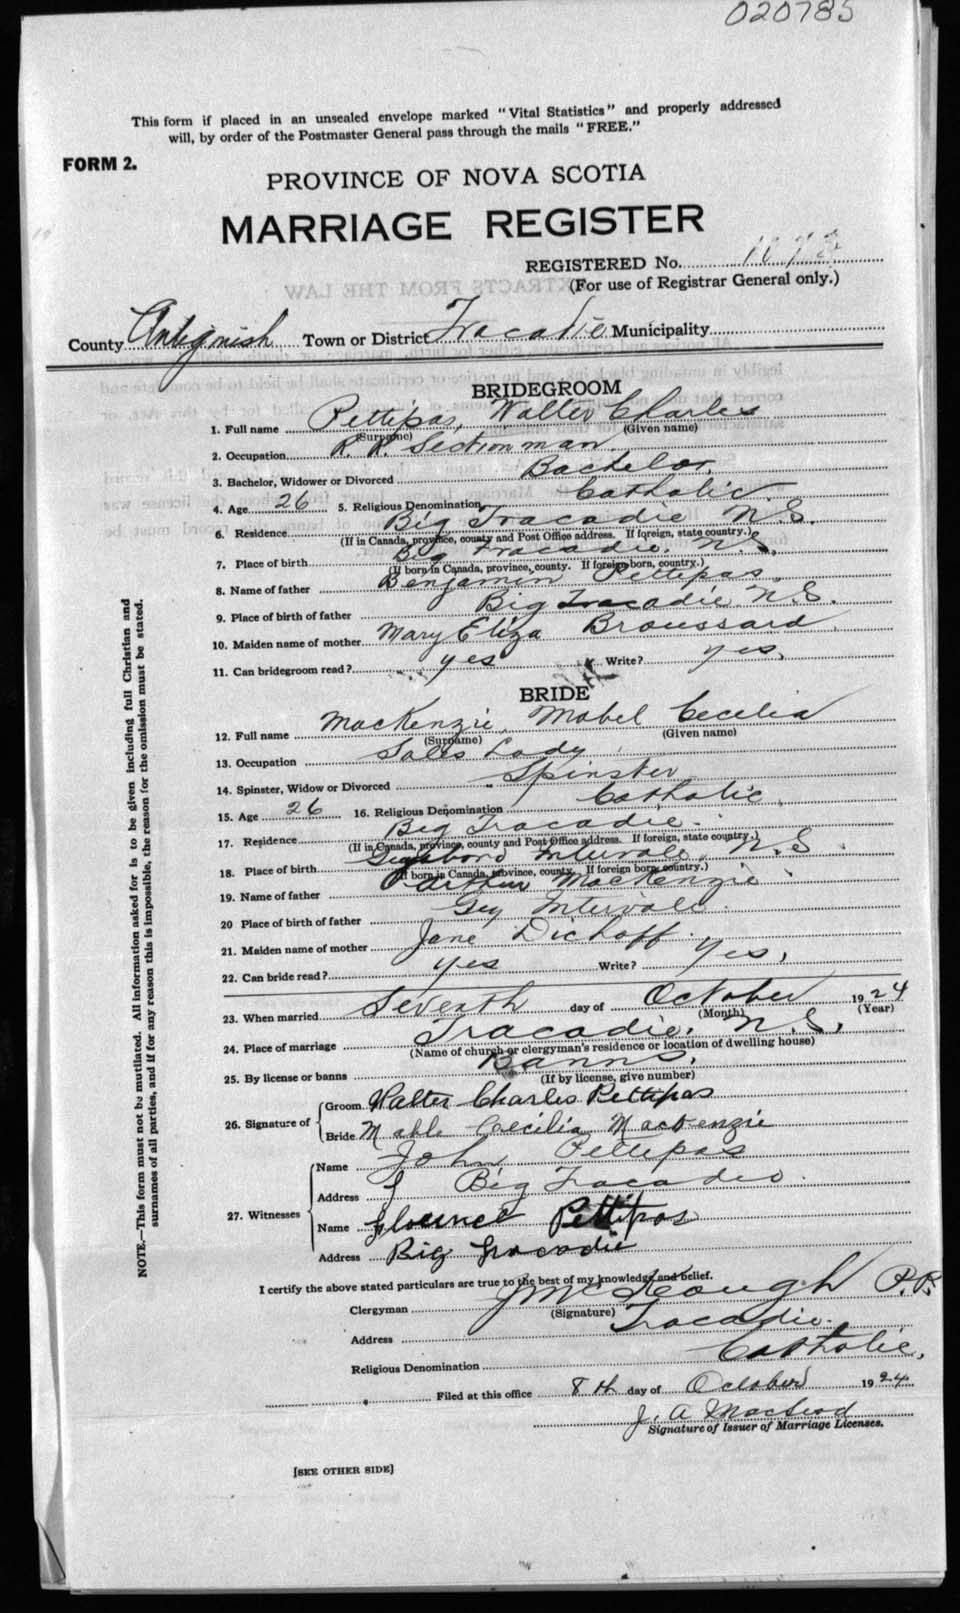 020785
This form if placed in an unsealed envelope marked "Vital Statistics" and properly addressed
will, by order of the Postmaster General pass through the mails "FREE."
FORM 2.
PROVINCE OF NOVA SCOTIA
MARRIAGE REGISTER
REGISTERED No.
(For use of Registrar General only.)
County Antignish Town or District Tracadie Municipality
BRIDEGROOM
1. Full name Pettipas, Walter Charles
(Surname) (Given name)
2. Occupation R. R. Sectionman
3. Bachelor, Widower or Divorced Bachelor.
4. Age 26 5. Religious Denomination Catholic.
6. Residence Big Tracadie N.S.
(If in Canada, province, county and Post Office address. If foreign, state country.)
7. Place of birth Big Tracadie. N.S.
(If born in Canada, province, county. If foreign born, country.)
8. Name of father Benjamin Pettipas.
9. Place of birth of father Big Tracadie N.S.
10. Maiden name of mother Mary Eliza Broussard.
11. Can bridegroom read? yes Write? yes.
BRIDE
12. Full name MacKenzie, Mabel Cecelia
(Surname) (Given name)
13. Occupation Sales Lady.
14. Spinster, Widow or Divorced Spinster
15. Age 26 16. Religious Denomination Catholic.
17. Residence Big Tracadie.
(If in Canada, province, county and Post Office address. If foreign, state country.)
18. Place of birth Intervale, N.S.
(If born in Canada, province, county. If foreign born country.)
19. Name of father Arthur MacKenzie
20 Place of birth of father Guy Intervale.
21. Maiden name of mother Jane
22. Can bride read? yes Write? yes,
23. When married Seventh day of October 1924
(Month) (Year)
24. Place of marriage Tracadie, N.S.
(Name of church or clergyman's residence or location of dwelling house)
25. By license or banns Banns.
(If by license, give number)
26. Signature of Groom Walter Charles Pettipas
Bride Mable Cecilia Mackenzie
27. Witnesses Name John Pettipas
Address Big Tracadie.
Name Florence Pettipas
Address Big Tracadie
I certify the above stated particulars are true to the best of my knowledge and belief.
Clergyman J McKeough P.P.
(Signature)
Address Tracadie.
Religious Denomination Catholic.
Filed at this office 8th day of October 1924
J. A MacLeod
Signature of Issuer of Marriage Licenses.
[SEE OTHER SIDE]
NOTE.—This form must not be mutilated. All information asked for is to be given including full Christian and
surnames of all parties, and if for any reason this is impossible, the reason for the omission must be stated.